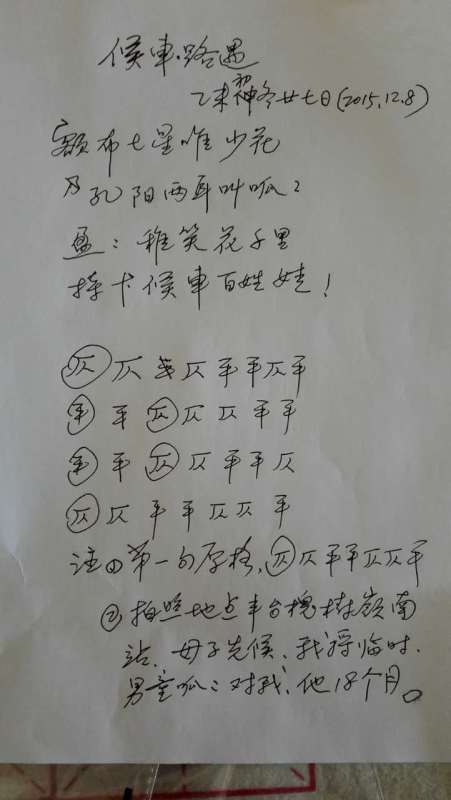 候車路遇
乙未神冬廿七日(2015.12.8)
额布七星唯少花
及孔阳两耳叫呱:
盈:稚笑花子里
持卡候車百姓娃!
仄仄 仄平平仄平
平平仄仄仄平平
平平仄仄平平仄
仄仄平平仄仄平
注①第一句原格,仄仄平平仄仄平
②拍照地点丰台槐树嶺南
站.母子先候、我将临时.
男童呱:对我、他18个月。